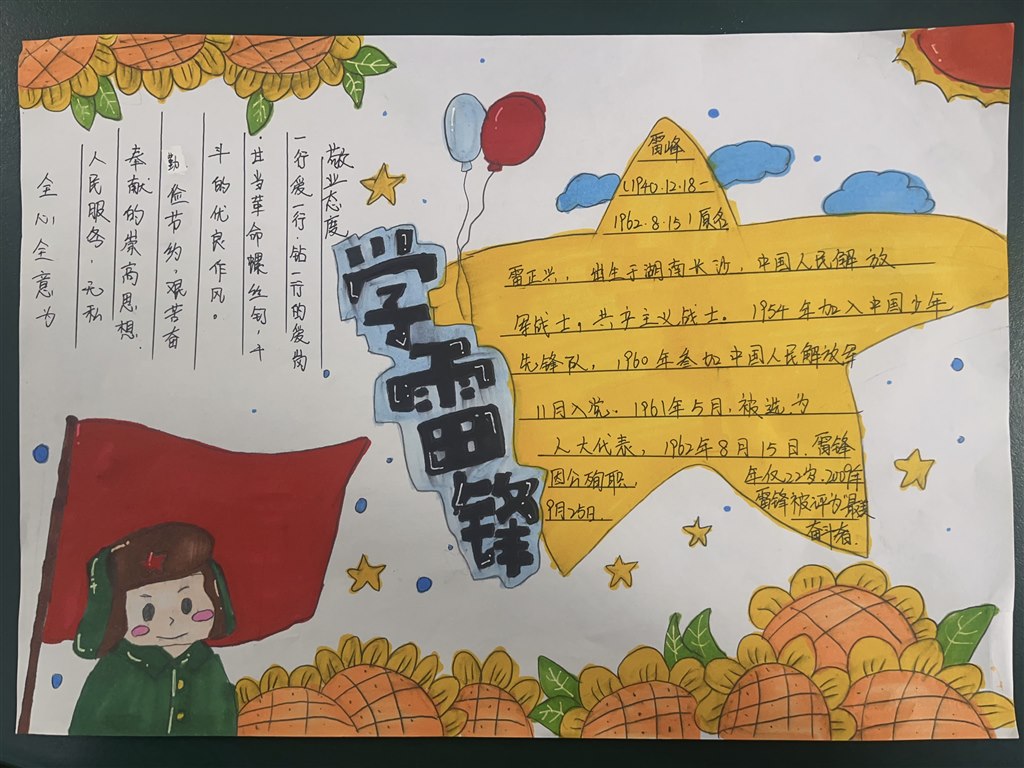 全心全意为
人民服务,无私
奉献的崇高思想.
勤俭节约,艰苦奋
斗的优良作风。
甘当革命螺丝钉,干
一行爱一行,钻一行的爱岗
敬业态度
学雷锋
雷峰
(1940.12.18-
1962.8.15)原名
雷正兴,出生于湖南长沙,中国人民解放
军战士,共产主义战士。1954年加入中国少年
先锋队,1960年参加中国人民解放军
11月入党.1961年5月,被选为
人大代表,1962年8月15日,雷锋
因公殉职, 年仅22岁.2009年
9月25日 雷锋被评为最美
奋斗者.